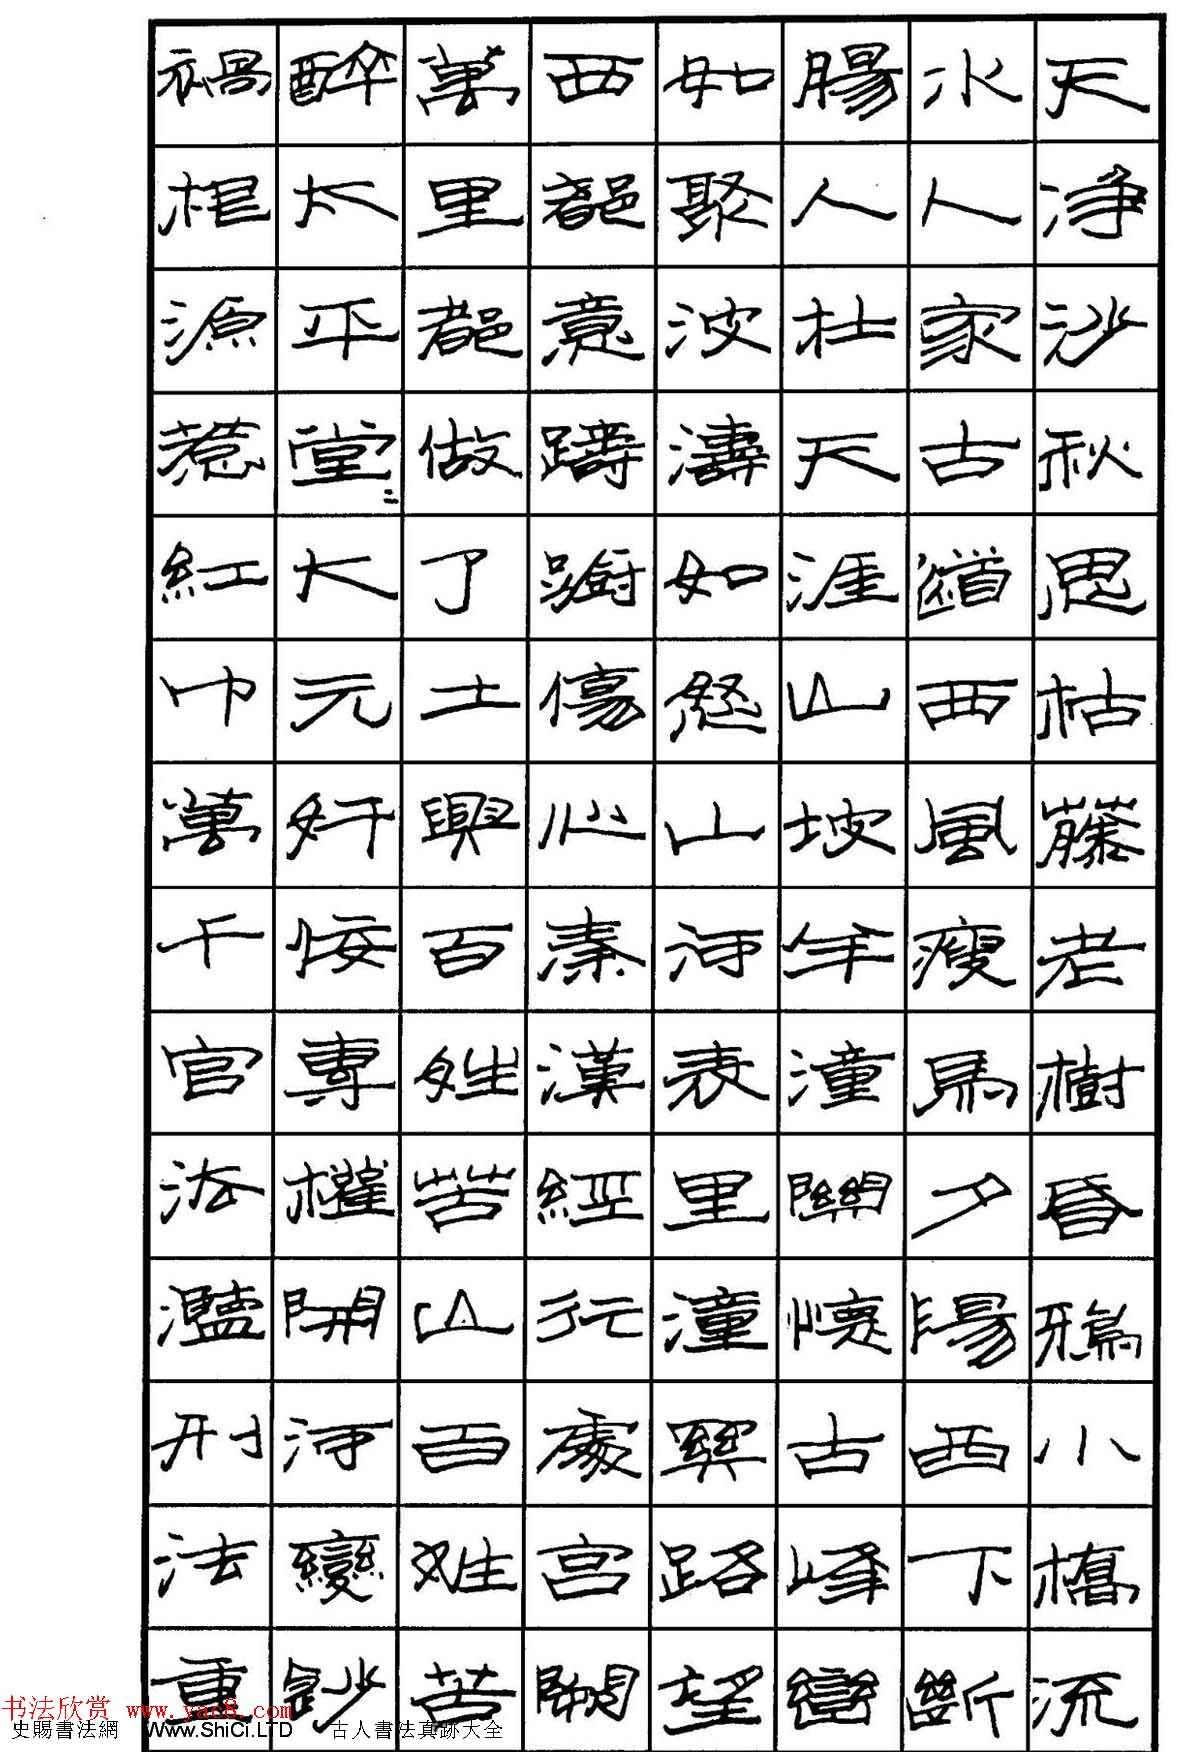 天淨沙秋思枯藤老樹昏鴉小橋流
水人家古道西風瘦馬夕陽西下斷
腸人杜天涯山坡羊潼關懷古峰巒
如聚波濤如怒山河表里潼關路望
西都意躊躕傷心秦漢經行處宮闕
萬里都做了土興百姓苦亡百姓苦
醉太平堂堂大元奸佞專權開河變鈔
禍根源惹紅巾萬千官法濫刑法重
书法欣赏 www.yac8.com
史賜書法網 Www.ShiCi.LTD 古人書法真跡大全